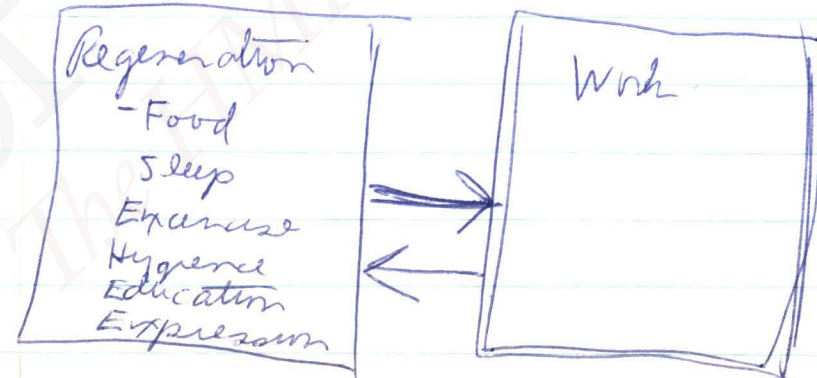 Regeneration
- Food
Sleep
Exercise
Hygiene
Education
Expression
Work
The HM